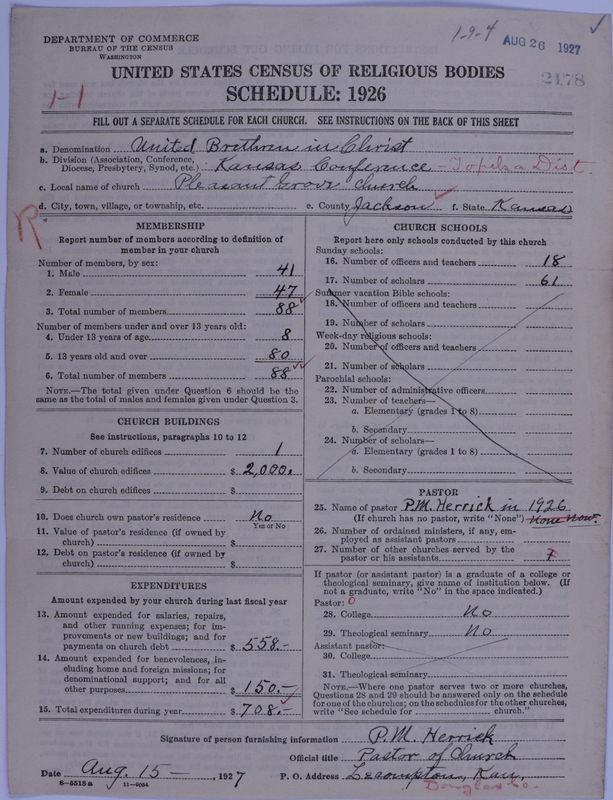 DEPARTMENT OF COMMERCE
BUREAU OF THE CENSUS
WASHINGTON
1-9-4
AUG 26 1927
2178
1-1
UNITED STATES CENSUS OF RELIGIOUS BODIES
SCHEDULE: 1926
FILL OUT A SEPARATE SCHEDULE FOR EACH CHURCH. SEE INSTRUCTIONS ON THE BACK OF THIS SHEET
a. Denomination United Brethren in Christ
b. Division (Association, Conference, Diocese, Presbytery, Synod, etc.) Kansas Conference - Topeka Dist.
c. Local name of church Pleasant Grove church
d. City, town, village, or township, etc. e. County Jackson f. State Kansas
R
MEMBERSHIP
Report number of members according to definition of member in your church
Number of members, by sex:
1. Male 41
2. Female 47
3. Total number of members 88
Number of members under and over 13 years old:
4. Under 13 years of age 8
5. 13 years old and over 80
6. Total number of members 88
NOTE.—The total given under Question 6 should be the same as the total of males and females given under Question 3.
CHURCH BUILDINGS
See instructions, paragraphs 10 to 12
7. Number of church edifices 1
8. Value of church edifices $ 2,000.
9. Debt on church edifices $
10. Does church own pastor's residence No
Yes or No
11. Value of pastor's residence (if owned by church) $
12. Debt on pastor's residence (if owned by church) $
EXPENDITURES
Amount expended by your church during last fiscal year
13. Amount expended for salaries, repairs, and other running expenses; for improvements or new buildings; and for payments on church debt $ 558.-
14. Amount expended for benevolences, including home and foreign missions; for denominational support; and for all other purposes $ 150.-
15. Total expenditures during year $ 708.-
CHURCH SCHOOLS
Report here only schools conducted by this church
Sunday schools:
16. Number of officers and teachers 18
17. Number of scholars 61
Summer vacation Bible schools:
18. Number of officers and teachers
19. Number of scholars
Week-day religious schools:
20. Number of officers and teachers
21. Number of scholars
Parochial schools:
22. Number of administrative officers
23. Number of teachers—
a. Elementary (grades 1 to 8)
b. Secondary
24. Number of scholars—
a. Elementary (grades 1 to 8)
b. Secondary
PASTOR
25. Name of pastor P.M. Herrick in 1926
(If church has no pastor, write "None") None Now.
26. Number of ordained ministers, if any, employed as assistant pastors
27. Number of other churches served by the pastor or his assistants
If pastor (or assistant pastor) is a graduate of a college or theological seminary, give name of institution below. (If not a graduate, write "No" in the space indicated.)
Pastor: 0
28. College No
29. Theological seminary No
Assistant pastor:
30. College
31. Theological seminary
NOTE.—Where one pastor serves two or more churches, Questions 28 and 29 should be answered only on the schedule for one of the churches; on the schedules for the other churches, write "See schedule for church."
Signature of person furnishing information P.M. Herrick
Official title Pastor of Church
Date Aug. 15 - , 1927 P. O. Address Lecompton, Kan,
Douglas Co.
8-5518a 11-9034